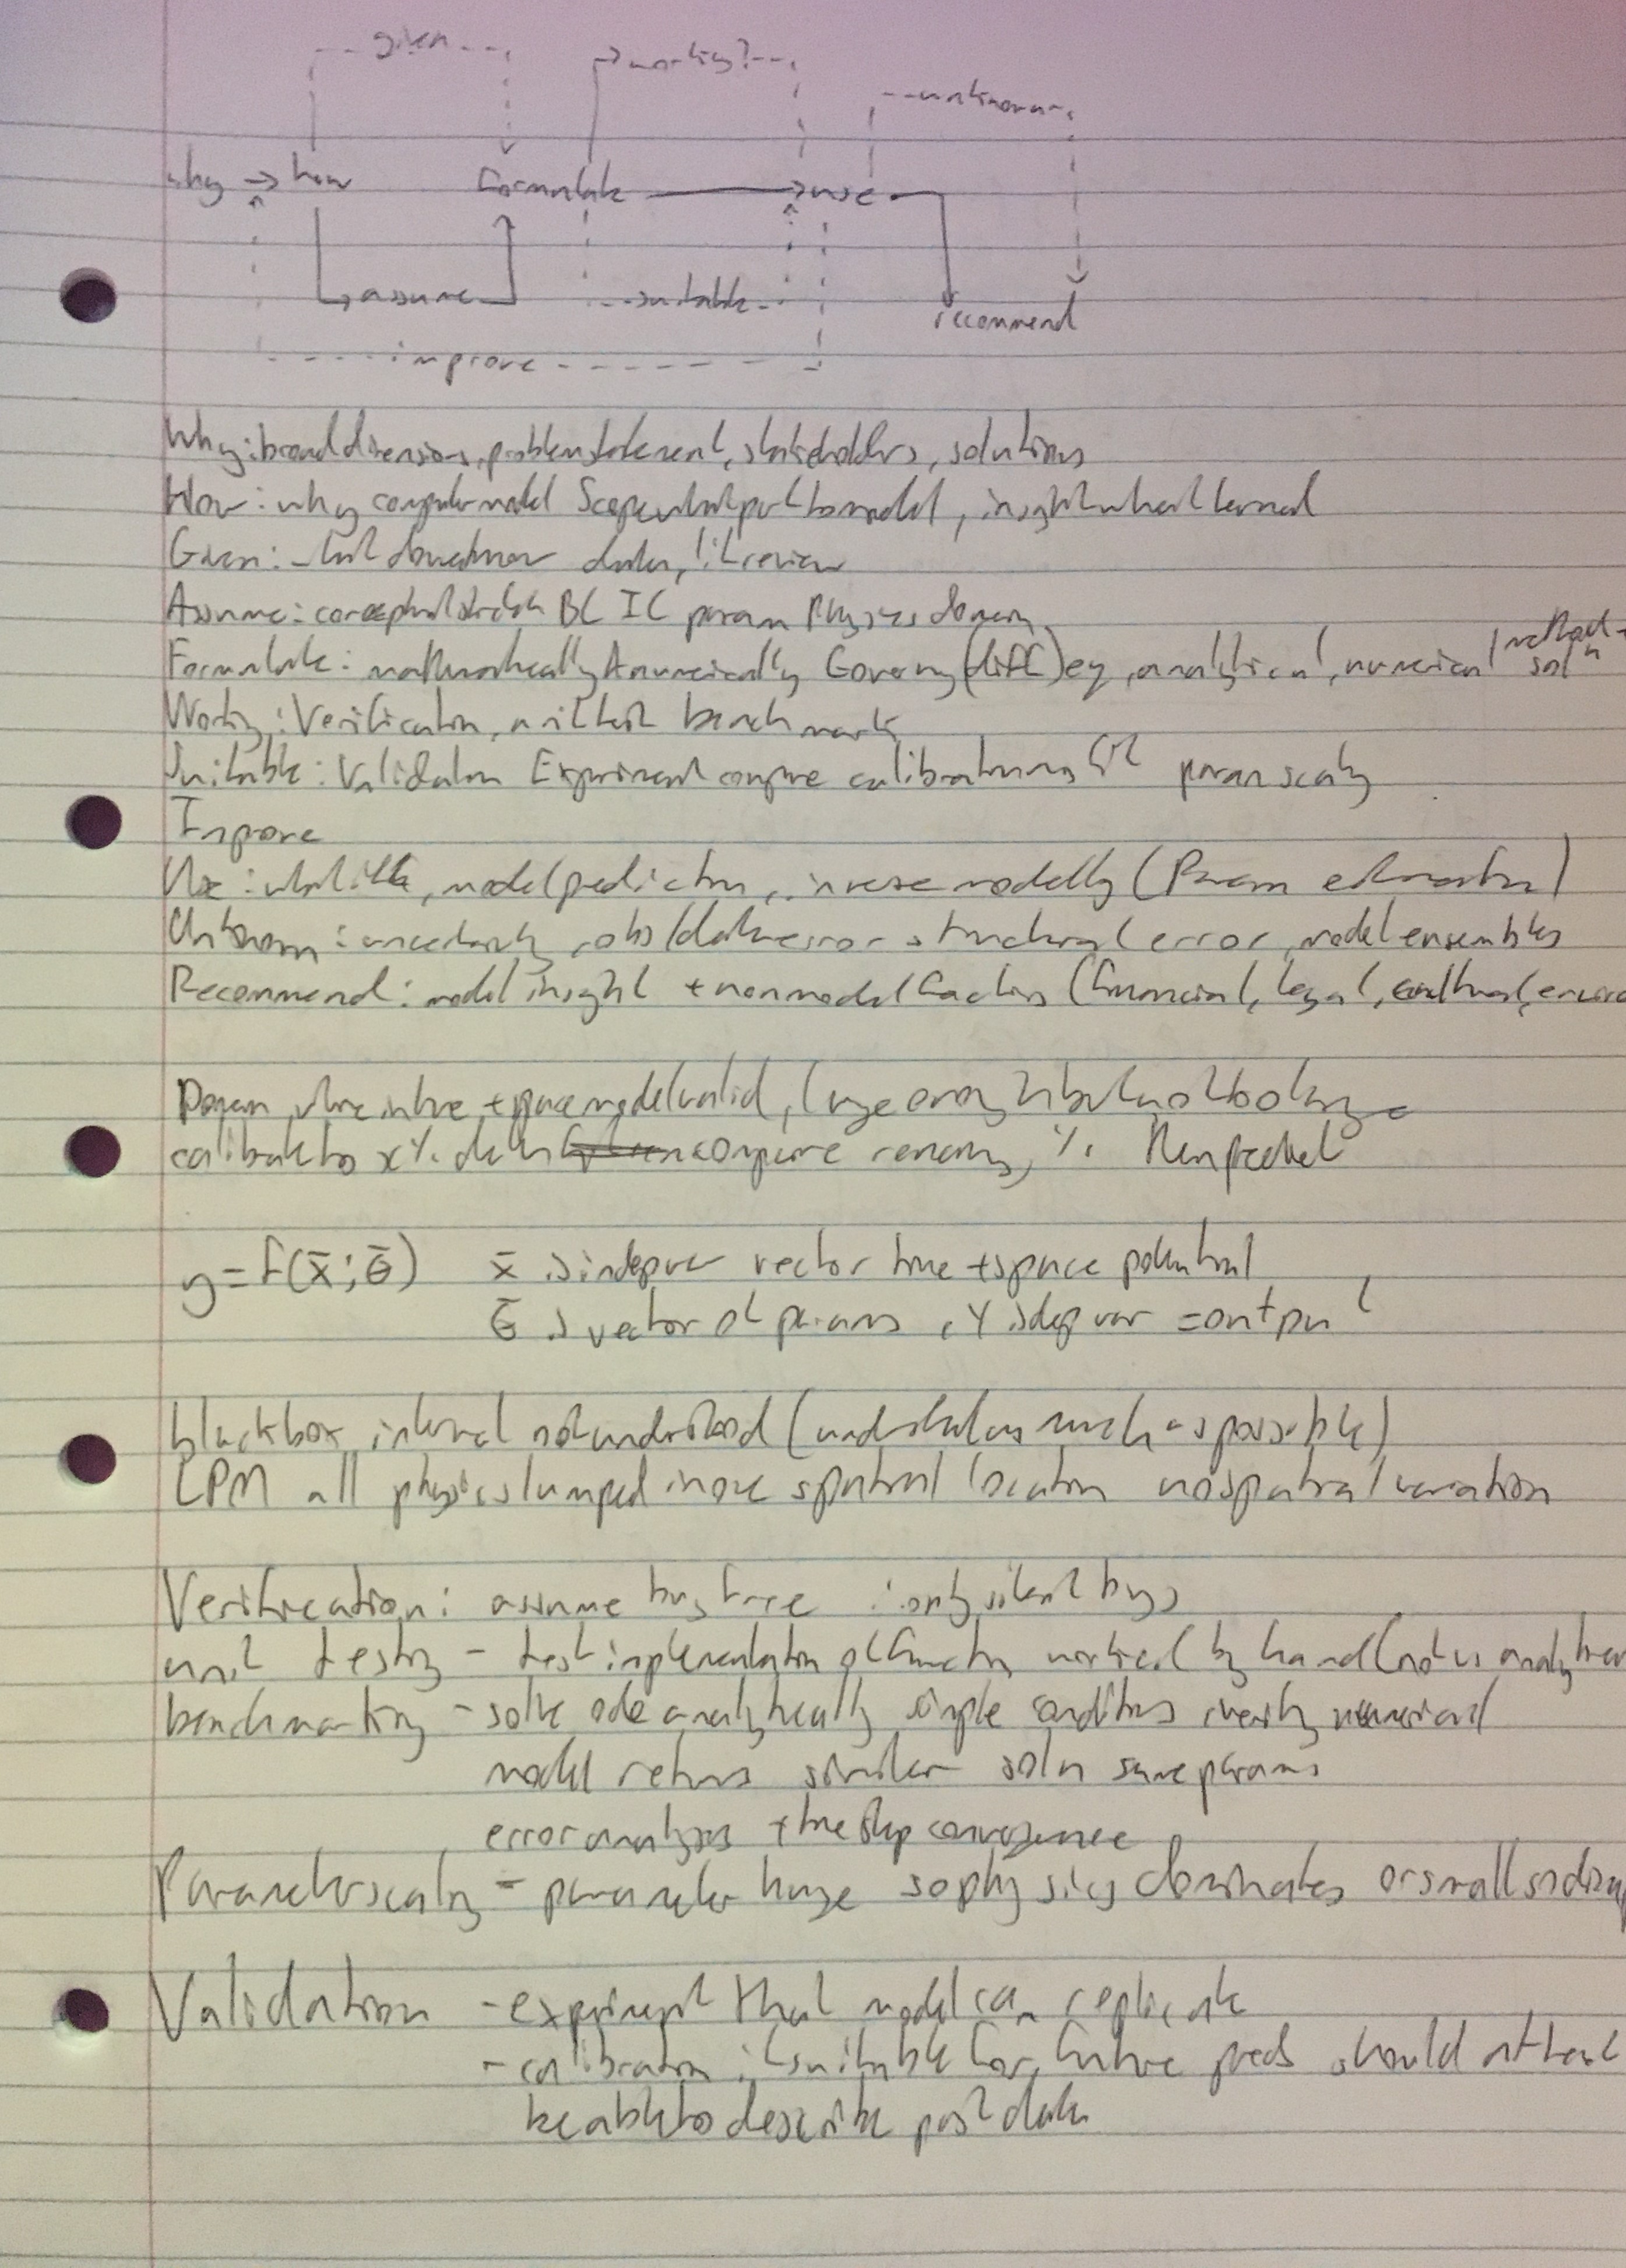 given
working?
unknown
why → how Formulate → use
assume suitable
recommend
improve
Why: broad dimensions, problem statement, stakeholders, solutions
How: why computer model Scope what part to model, insight what learned
Given: what do we know data, lit review
Assume: conceptual sketch BC IC param Physics domain
Formulate: mathematically & numerically Govering (diff) eq, analytical, numerical method soln
Working: Verification, unit test benchmark
Suitable: Validation Experiment compare calibration fit param scaling
Improve
Use: what if, model prediction, inverse modelling (Param estimation)
Unknown: uncertainty, obs/data error structural error, model ensembles
Recommend: model insight + nonmodel factors (financial, legal, cultural,
Param + model valid, large enough but not too large
calibrate to x% data compare remaing % then predict
y=f(x̄;θ̄) x̄ is indep var vector time + space potential
θ̄ is vector of params, y is dep var = output
blackbox internal not understood (understand as much as possible)
LPM all physics lumped in one spatial location no spatial variation
Verification: assume bug free : only silent bugs
unit testing - test implementation of function worked by hand (not
benchmarking - solve ode analytically simple conditions verify numerical
model returns similar soln same params
error analysis + time step convergence
Parameter scaling - parameter huge so physics dominates or small so
Validation - experiment that model can replicate
- calibration if suitable for future preds should at least
be able to describe past data